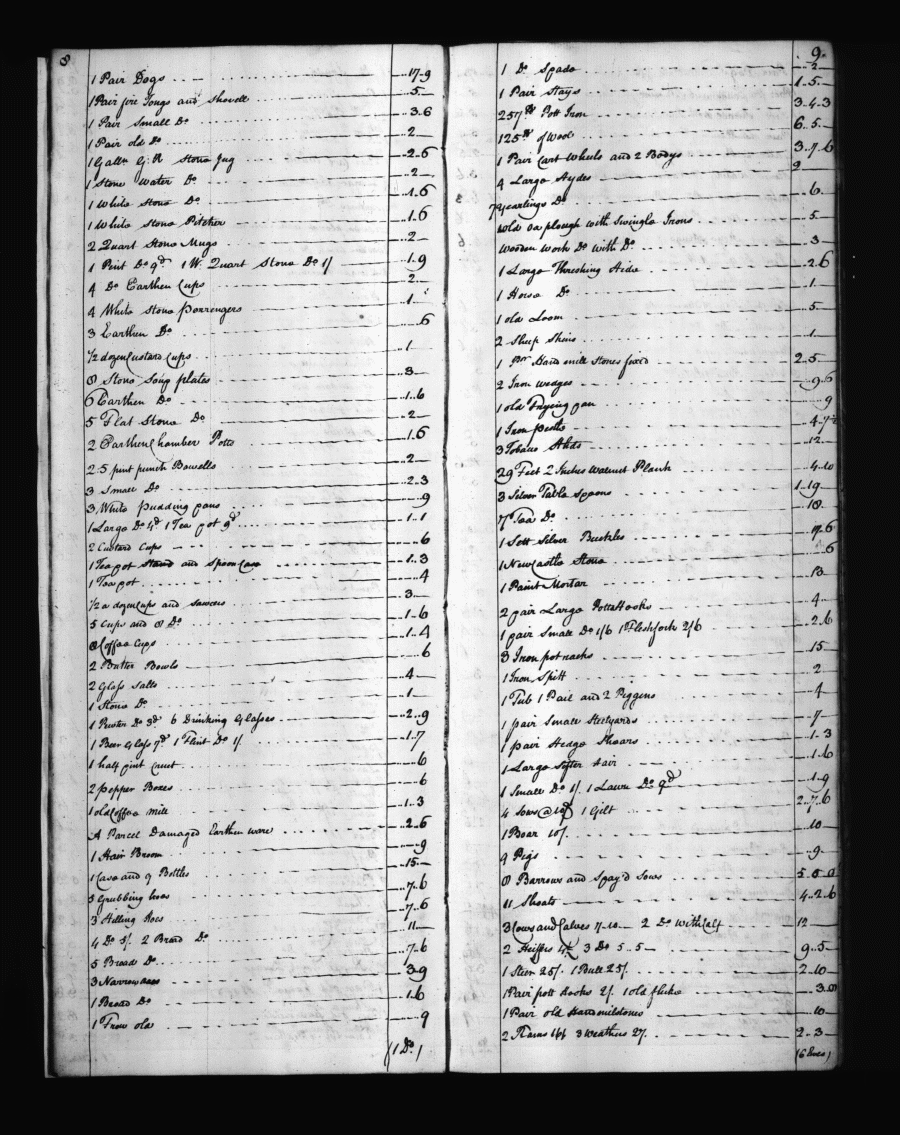 8
1 Pair Dogs 17..9
1 Pair fire Tongs and Shovell 5
1 Pair Small Do 3.6
1 Pair old Do 2
1 Galln G:R Stone Jug 2..6
1 Stone Water Do 2
1 White Stone Do 1.6
1 White Stone Pitcher 1.6
2 Quart Stone Mugs 2
1 Pint Do 9d 1 W. Quart Stone Do 1/ 1.9
4 Do Earthen Cups 2
4 White Stone porrengers 1
3 Earthen Do 6
1/2 dozen Custard Cups 1
8 Stone Soup plates 3
6 Earthen Do 1..6
5 Flat Stone Do 2
2 Earthen Chamber Potts 1.6
2. 5 pint punch Bowells 2
3 Small Do 2.3
3 White pudding pans 9
1 Large Do 4d 1 Tea pot 9d 1..1
2 Custard Cups 6
1 Tea pot Stand and Spoon Case 1.3
1 Tea pot 4
1/2 a dozen Cups and Sawcers 3
5 Cups and 8 Do 1..6
8 Coffee Cups 1..4
2 Butter Bowls 6
2 Glass Salts 4
1 Stone Do 1
1 Pewter Do 3d 6 Drinking Glasses 2..9
1 Beer Glass 7d 1 Flint Do 1/. 1.7
1 half pint Cruet 6
2 pepper Boxes 6
1 old Coffee Mill 1..3
A Parcel Damaged Earthen ware 2..6
1 Hair Broom 9
1 Case and 9 Bottles 15
5 Grubbing hoes 7..6
3 Hilling Hoes 7..6
4 Do 5/. 2 Broad Do 11
5 Broad Do 7..6
3 Narrow hoes 3 9
1 Broad Do 1.6
1 Frow old 9
(1 Do)
9.
1 Do Spade 2
1 Pair Stays 1..5
257 lb Pott Iron 3.4.3
125 lb of Wool 6..5
1 Pair Cart Wheels and 2 Bodys 3..7..6
4 Large Hydes 2
7 yearlings Do 6
old plough with Swingle Irons 5
Wooden Work Do with Do 3
1 Large Threshing Hide 2.6
1 Horse Do 1
1 old Loom 5
2 Sheep Skins 1
1 Pr Hand mill Stones fixed 2..5
2 Iron Wedges 9..6
1 old Frying pan 9
1 Iron pestle 4..7 1/2
3 Tobacco Hhds 12
29 Feet 2 Inches Walnut Plank 4..10
3 Silver Table Spoons 1..19
7 Tea Do 18
1 Sett Silver Buckles 17.6
1 New Castle Stone 6
1 Paint Mortar 13
2 pair Large Pott Hooks 4
1 pair Small Do 1/6 1 Fleshfork 2/6 2.6
3 Iron potracks 15
1 Iron Spitt 2
1 Tub 1 Pail and 2 Piggens 4
1 pair Small Steelyards 7
1 pair Hedge Shears 1.3
1 Large Sifter Hair 1.6
1 Small Do 1/. 1 Lawn Do 9d 1.9
4 Sows @ 10/ 1 Gilt 2..7..6
1 Boar 10/. 10
9 Pigs 9
8 Barrows and Spay'd Sows 5 0 0
11 Shoats 4..2..6
3 Cows and Calves 7..10 2 Do with Calf 12
2 Heiffers 4£ 3 Do 5..5 9..5
1 Steer 25/. 1 Bull 25/. 2..10
1 Pair pott Hooks 2/. 1 old fluke 3.8
1 Pair old Handmilstones 10
2 Rams 16/ 3 Weathers 27. 2..3
(6 Ewes)